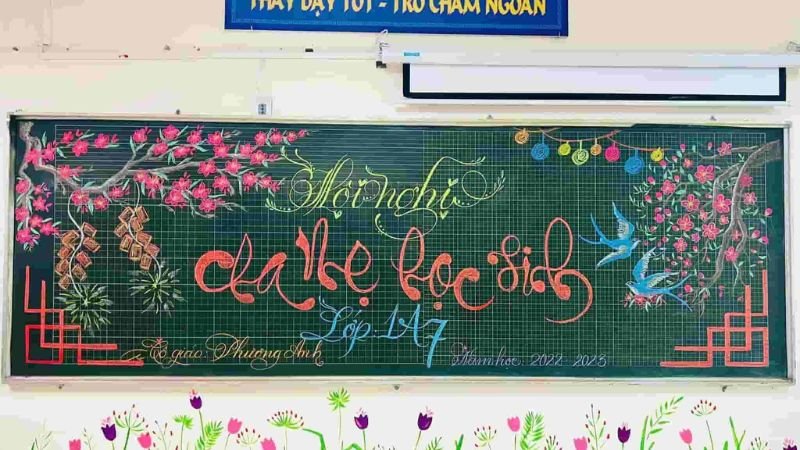 THẦY DẠY TỐT - TRÒ CHĂM NGOAN
Hội nghị
cha Mẹ học sinh
Lớp: 1A7
Cô giáo: Phương Anh
Năm học: 2022-2023